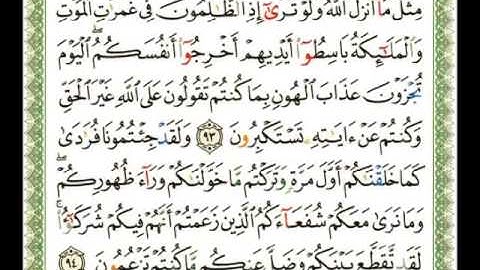 مِثْلَ مَآ أَنزَلَ ٱللَّهُ وَلَوْ تَرَىٰٓ إِذِ ٱلظَّٰلِمُونَ فِى غَمَرَٰتِ ٱلْمَوْتِ
وَٱلْمَلَٰٓئِكَةُ بَاسِطُوٓا۟ أَيْدِيهِمْ أَخْرِجُوٓا۟ أَنفُسَكُمُ ۖ ٱلْيَوْمَ
تُجْزَوْنَ عَذَابَ ٱلْهُونِ بِمَا كُنتُمْ تَقُولُونَ عَلَى ٱللَّهِ غَيْرَ ٱلْحَقِّ
وَكُنتُمْ عَنْ ءَايَٰتِهِۦ تَسْتَكْبِرُونَ ٩٣ وَلَقَدْ جِئْتُمُونَا فُرَٰدَىٰ
كَمَا خَلَقْنَٰكُمْ أَوَّلَ مَرَّةٍ وَتَرَكْتُم مَّا خَوَّلْنَٰكُمْ وَرَآءَ ظُهُورِكُمْ ۖ
وَمَا نَرَىٰ مَعَكُمْ شُفَعَآءَكُمُ ٱلَّذِينَ زَعَمْتُمْ أَنَّهُمْ فِيكُمْ شُرَكَٰٓؤُا۟ ۚ
لَقَد تَّقَطَّعَ بَيْنَكُمْ وَضَلَّ عَنكُم مَّا كُنتُمْ تَزْعُمُونَ ٩٤